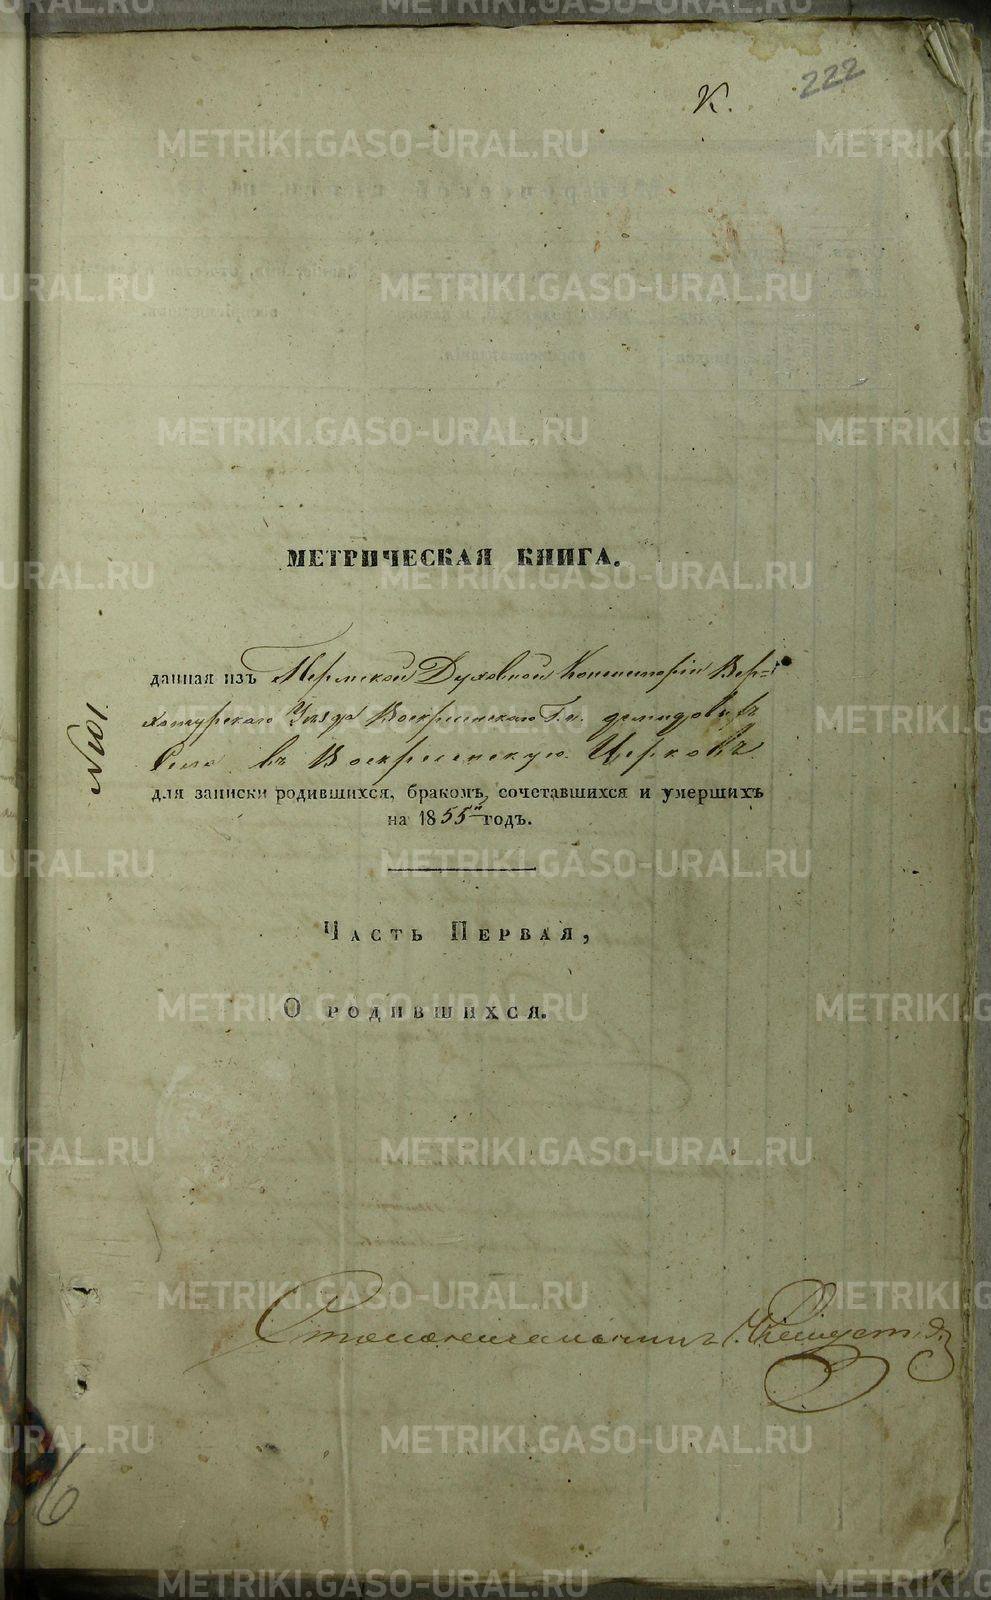 К.
222
МЕТРИЧЕСКАЯ КНИГА.
№ 101.
данная изъ Пермской Духовной Консисторіи Вер-
хотурскаго Уѣзда Воскресенскаго Г.н. Демидовыхъ
Села въ Воскресенскую Церковь
для записки родившихся, бракомъ сочетавшихся и умершихъ
на 1855й годъ.
Часть Первая,
О родившихся.
Столоначальникъ
6
METRIKI.GASO-URAL.RU